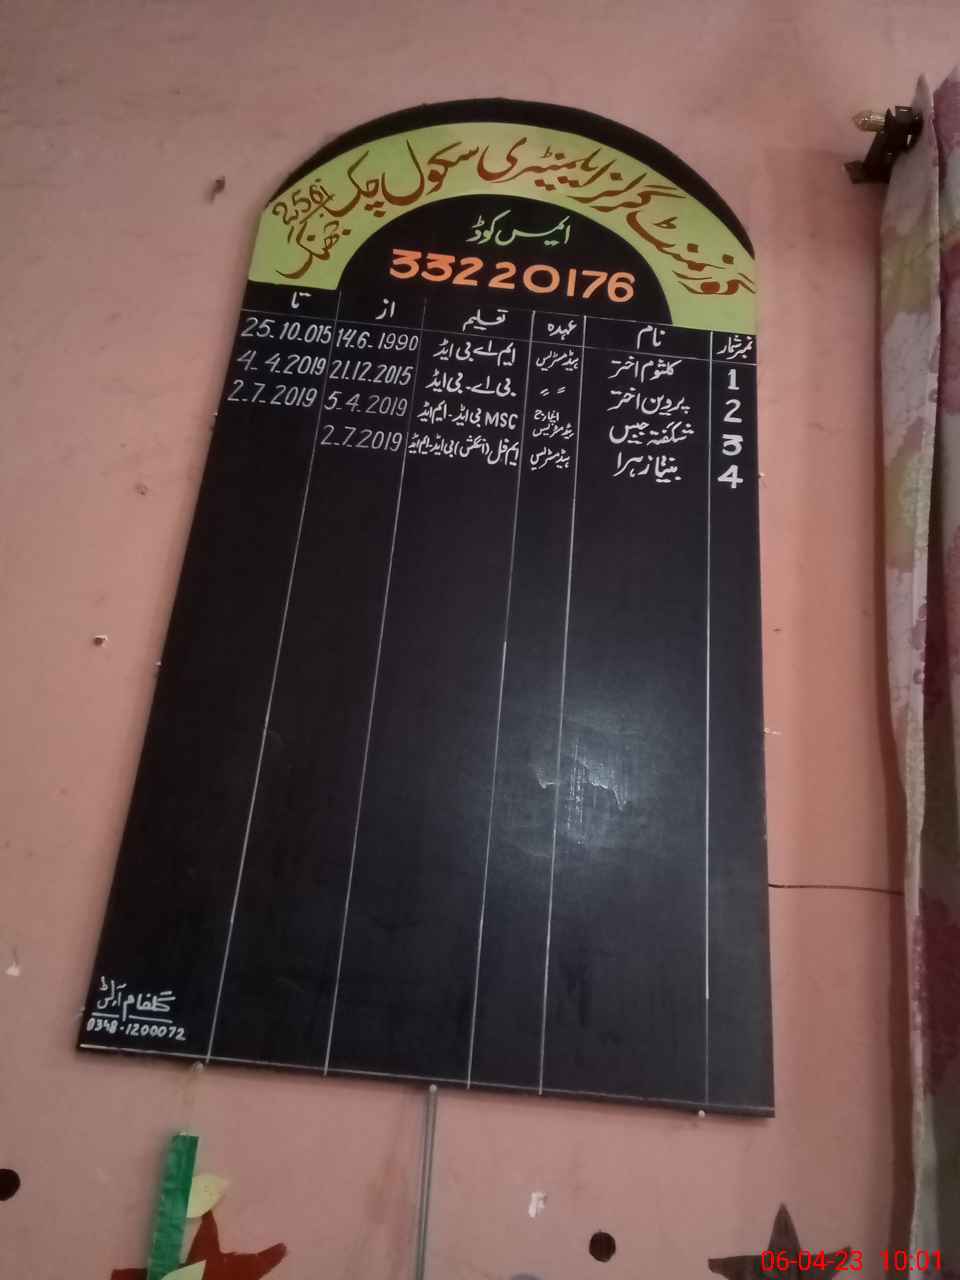 گورنمنٹ گرلز ایلیمنٹری سکول چک 256j جھنگ
ایمس کوڈ
33220176
نمبر شمار نام عہدہ تعلیم از تا
1 کلثوم اختر ہیڈمسٹریس ایم اے بی ایڈ 14.6.1990 25.10.015
2 پروین اختر " " بی اے۔بی ایڈ 21.12.2015 4.4.2019
3 شگفتہ جبیں انچارج ہیڈمسٹریس MSC بی ایڈ۔ایم ایڈ 5.4.2019 2.7.2019
4 زہرا ہیڈمسٹریس ایم فل (انگلش) بی ایڈ۔ایم ایڈ 2.7.2019
گلفام آرٹس
0348-1200072
06-04-23 10:01